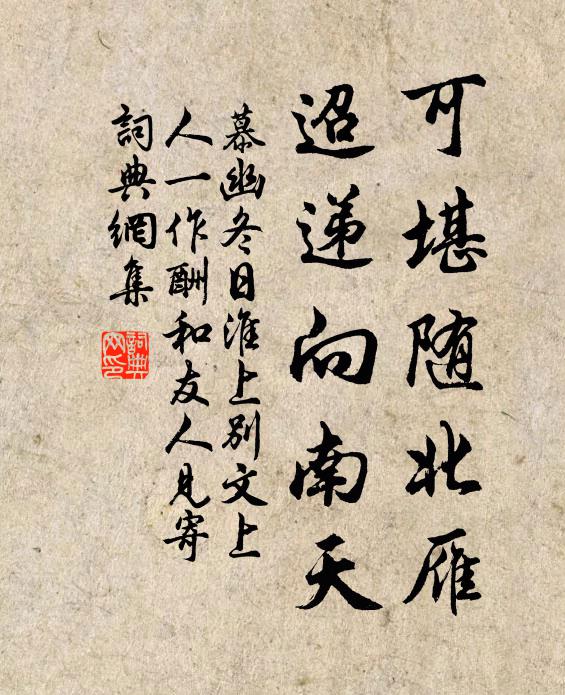 可堪随北雁
迢递向南天
慕幽冬日淮上别文上
人一作酬和友人见寄
詞典網集
詞典
网印